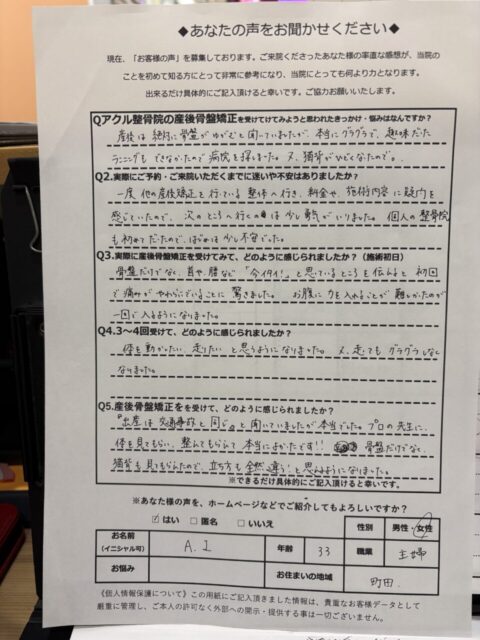 ◆あなたの声をお聞かせください◆
現在、「お客様の声」を募集しております。ご来院くださったあなた様の率直な感想が、当院の
ことを初めて知る方にとって非常に参考になり、当院にとっても何より力となります。
出来るだけ具体的にご記入頂けると幸いです。ご協力お願いいたします。
Qアクル整骨院の産後骨盤矯正を受けてけてみようと思われたきっかけ・悩みはなんですか？
産後は絶対に骨盤がゆがむと聞いていましたが、本当にグラグラで、趣味だった
ランニングもできなかたので病院を探しました。又、猫背がひどくなたので。
Q2.実際にご予約・ご来院いただくまでに迷いや不安はありましたか？
一度、他の産後矯正を行っている整体へ行き、料金や、施術内容に疑問を
感じていたので、次のところへ行くのは少し勇気がいりました。個人の整骨院
も初めてだたので、はじめは少し不安でした。
Q3.実際に産後骨盤矯正を受けてみて、どのように感じられましたか？（施術初日）
骨盤だけでなく、首や、腰など「今イタイ！」と思っているところを伝えると初回
で痛みがやわらいでいることに驚きました。お腹に力を入れることが難しかたのが
一回で入るようになりました。
Q4.3〜4回受けて、どのように感じられましたか？
体を動かしたい、走りたいと思うようになりました。又、走ってもグラグラしなく
なりました。
Q5.産後骨盤矯正をを受けて、どのように感じられましたか？
「出産は交通事故と同じ」と聞いていましたが本当でした。プロの先生に、
体を見てもらい、整えてもらえて本当によかたです！！ 骨盤だけでなく、
猫背も見てもらえたので、立ち方も全然違う！と思えるようになりました。
※できるだけ具体的にご記入頂けると幸いです。
※あなた様の声を、ホームページなどでご紹介してもよろしいですか？
☑はい □匿名 □いいえ
性別 男性・女性
お名前（イニシャル可） A.I 年齢 33 職業 主婦
お悩み お住まいの地域 町田.
《個人情報保護について》この用紙にご記入頂きました情報は、貴重なお客様データとして
厳重に管理し、ご本人の許可なく外部への開示・提供する事は一切ございません。